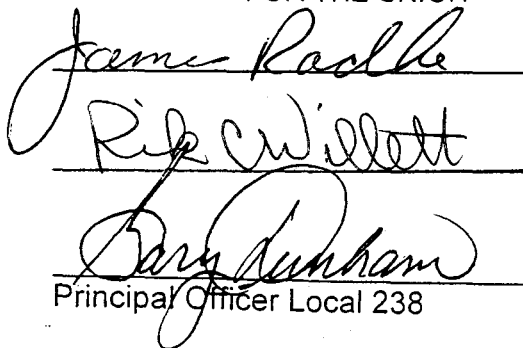 FOR THE UNION
James
Rick C Willett
Gary Dunham
Principal Officer Local 238